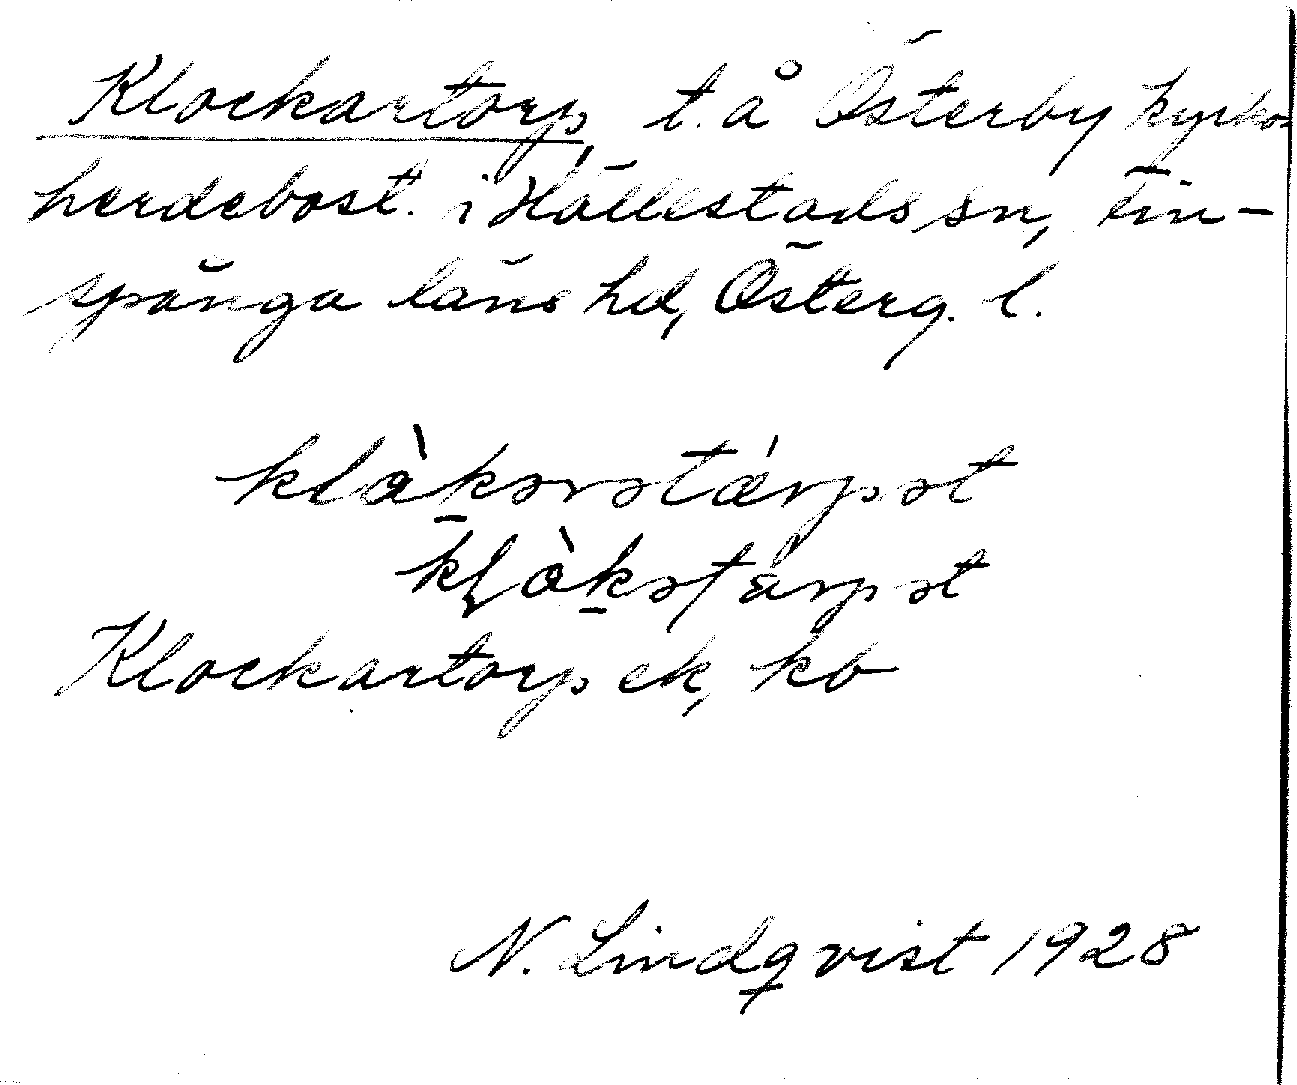 Klockartorp, t. å Österby kyrko-
herdebost. i Hällestads sn, Fin-
spånga läns hd, Österg. l.
klàkərstárpət
kḷàkstarpət
Klockartorp ek, kb
N. Lindqvist 1928